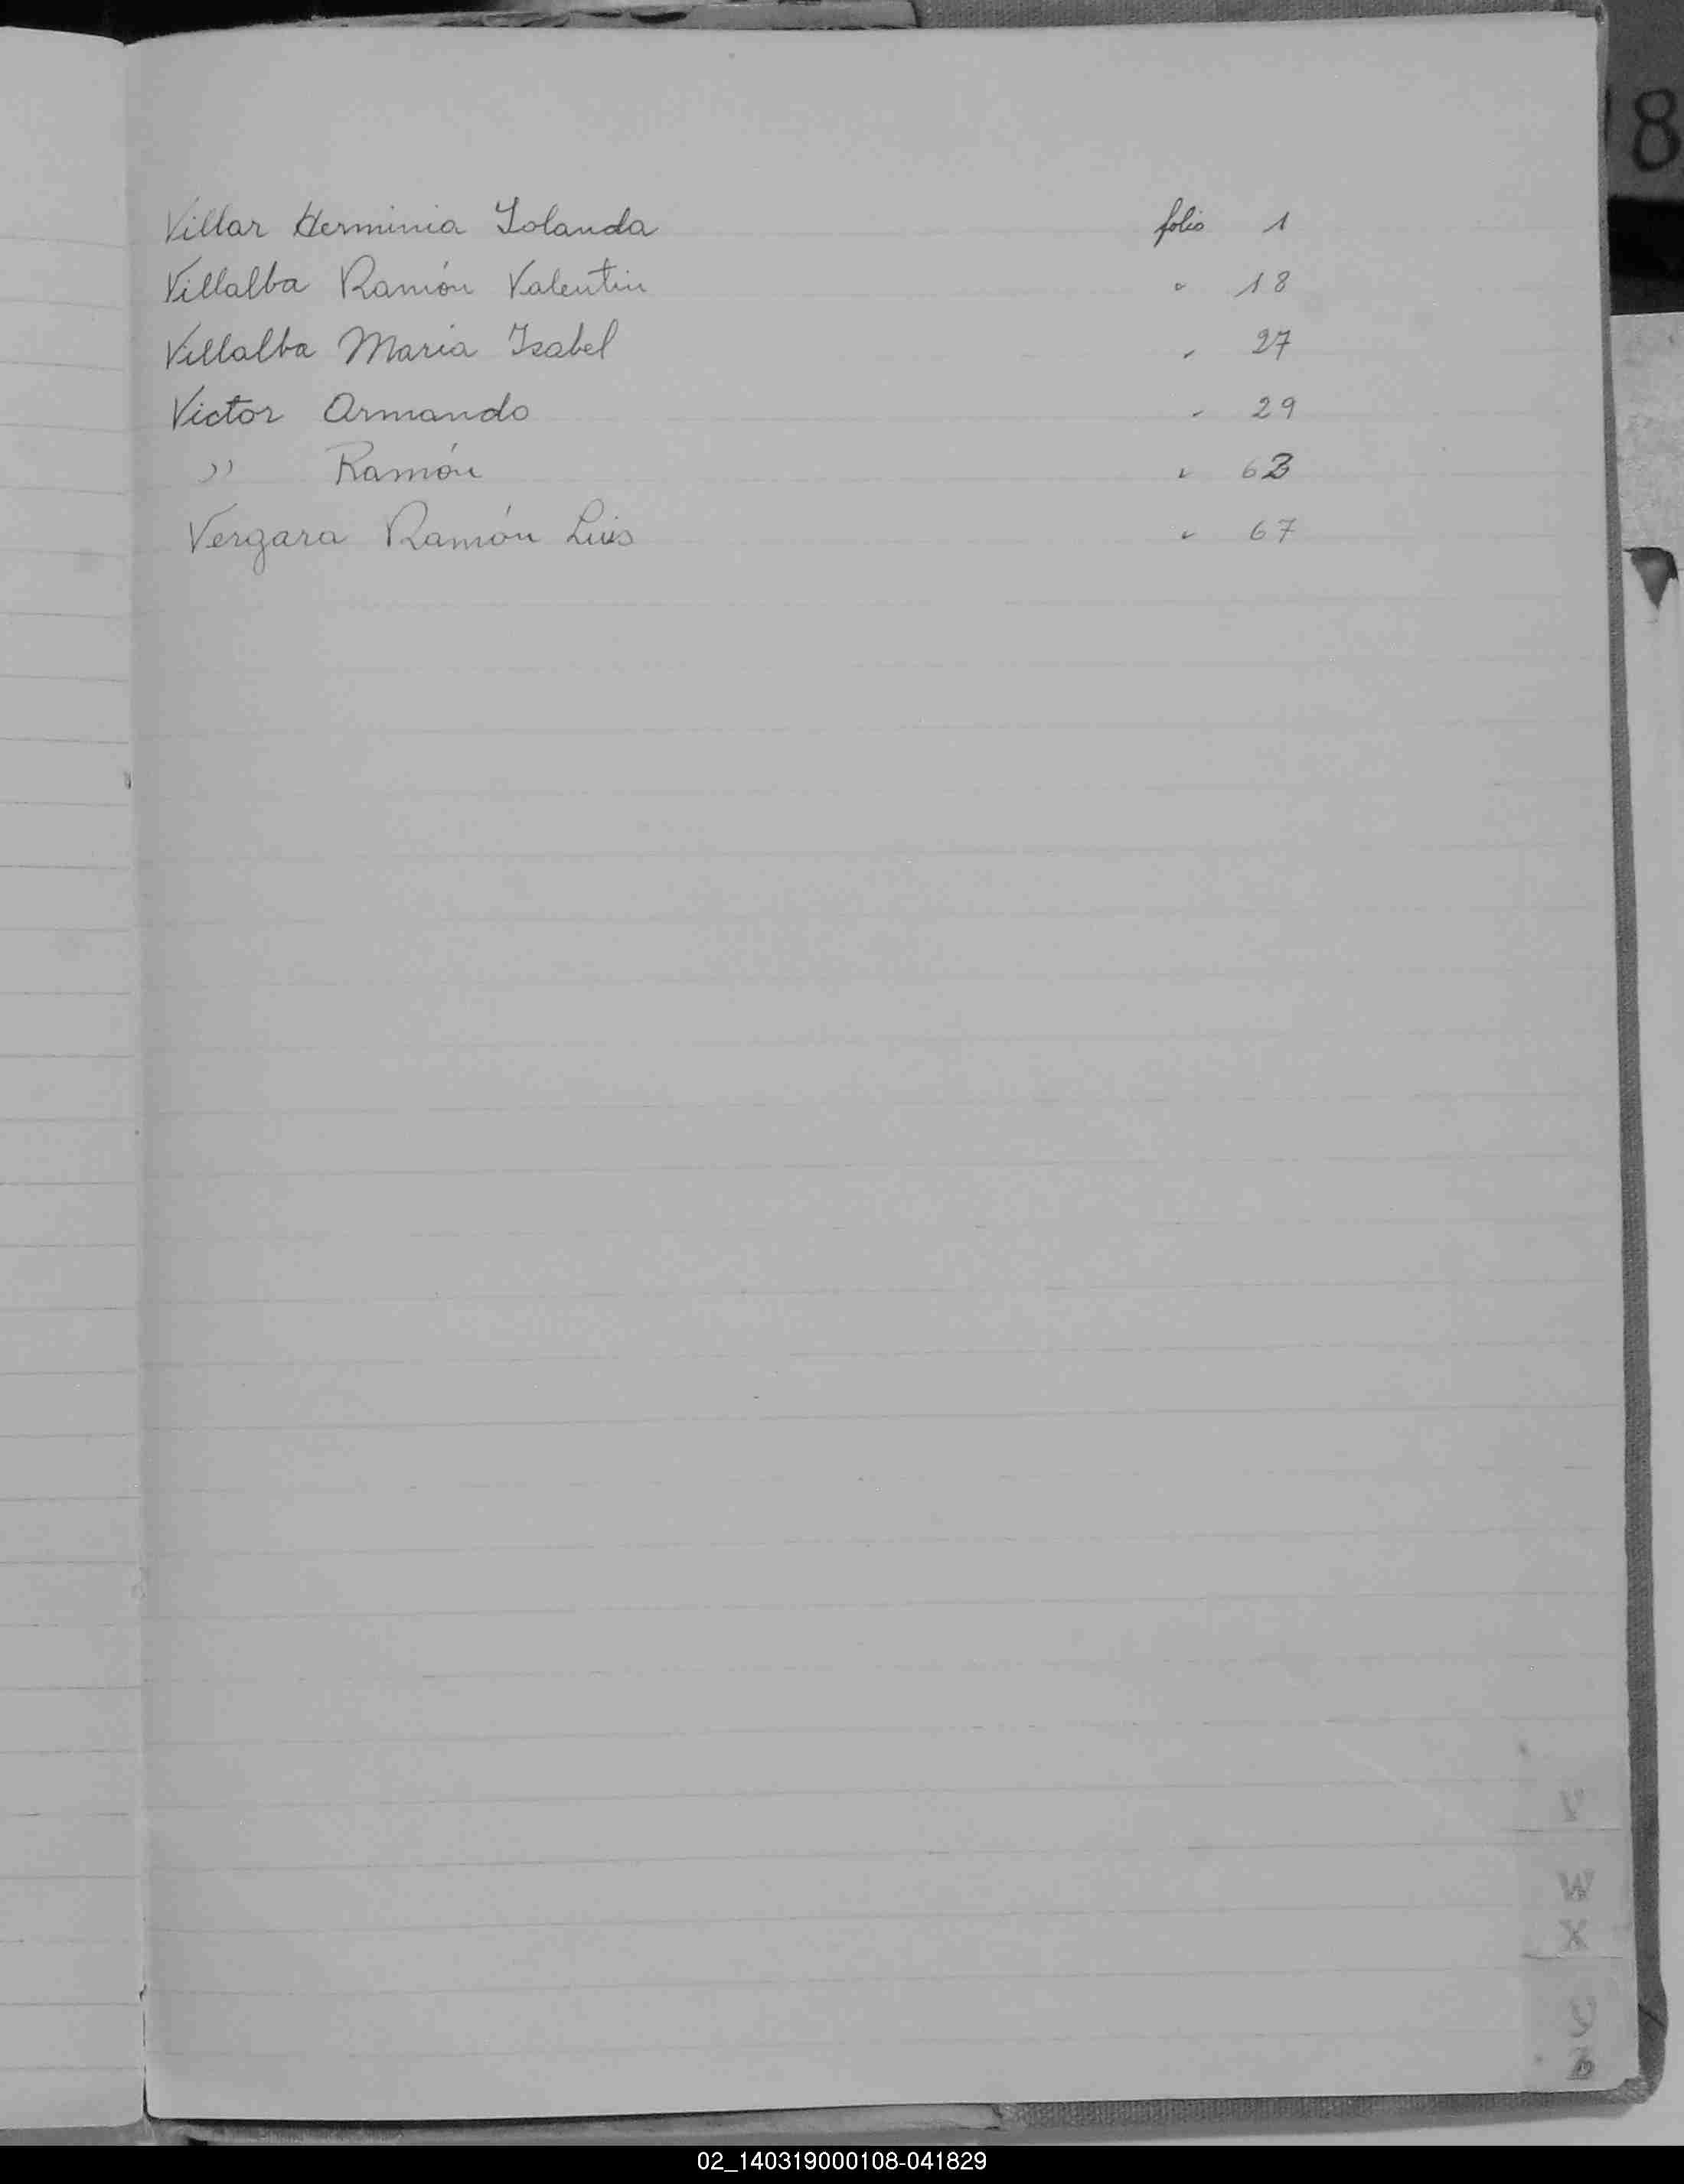 8
Villar Herminia Yolanda folio 1
Villalba Ramón Valentin " 18
Villalba Maria Isabel " 27
Victor Armando " 29
" Ramón " 63
Vergara Ramón Luis " 67
V
W
X
02_140319000108-041829